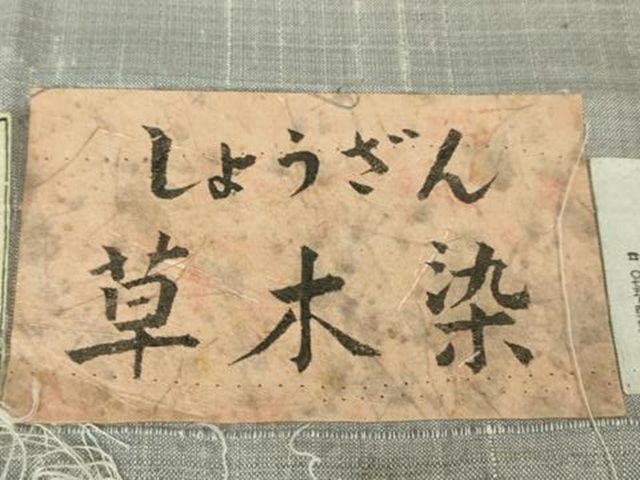 しょうざん
草木染